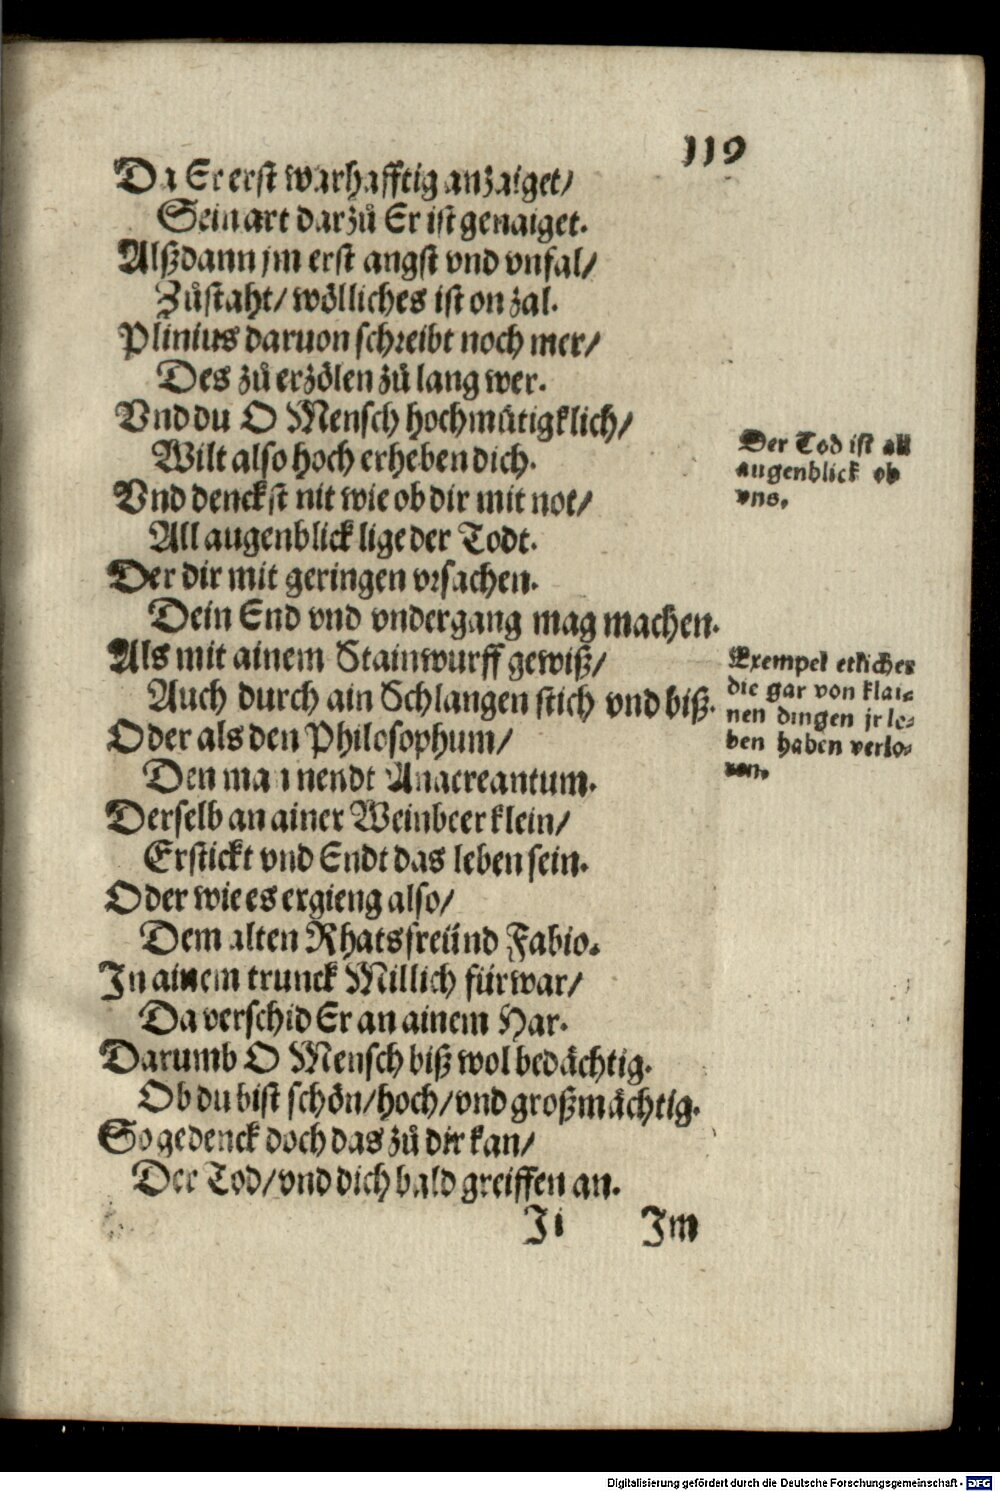 119
Da Er erst warhafftig anzaiget/
Sein art darzů Er ist genaiget.
Alßdann jm erst angst vnd vnfal/
Zůstaht/ wölliches ist on zal.
Plinius daruon schreibt noch mer/
Des zů erzölen zů lang wer.
Vnd du O Mensch hochmütigklich/
Wilt also hoch erheben dich.
Vnd denckst nit wie ob dir mit not/
All augenblick lige der Todt.
Der dir mit geringen vrsachen.
Dein End vnd vndergang mag machen.
Als mit ainem Stainwurff gewiß/
Auch durch ain Schlangen stich vnd biß.
Oder als den Philosophum/
Den man nendt Anacreantum.
Derselb an ainer Weinbeer klein/
Erstickt vnd Endt das leben sein.
Oder wie es ergieng also/
Dem alten Rhatsfreünd Fabio.
In ainem trunck Millich fürwar/
Da verschid Er an ainem Har.
Darumb O Mensch biß wol bedächtig.
Ob du bist schön/hoch/vnd großmächtig.
So gedenck doch das zů dir kan/
Der Tod/vnd dich bald greiffen an.
Ii Im
Der Tod ist all
augenblick ob
vns.
Exempel etlicher
die gar von klai⸗
nen dingen jr le⸗
ben haben verlo⸗
ren.
Digitalisierung gefördert durch die Deutsche Forschungsgemeinschaft - DFG